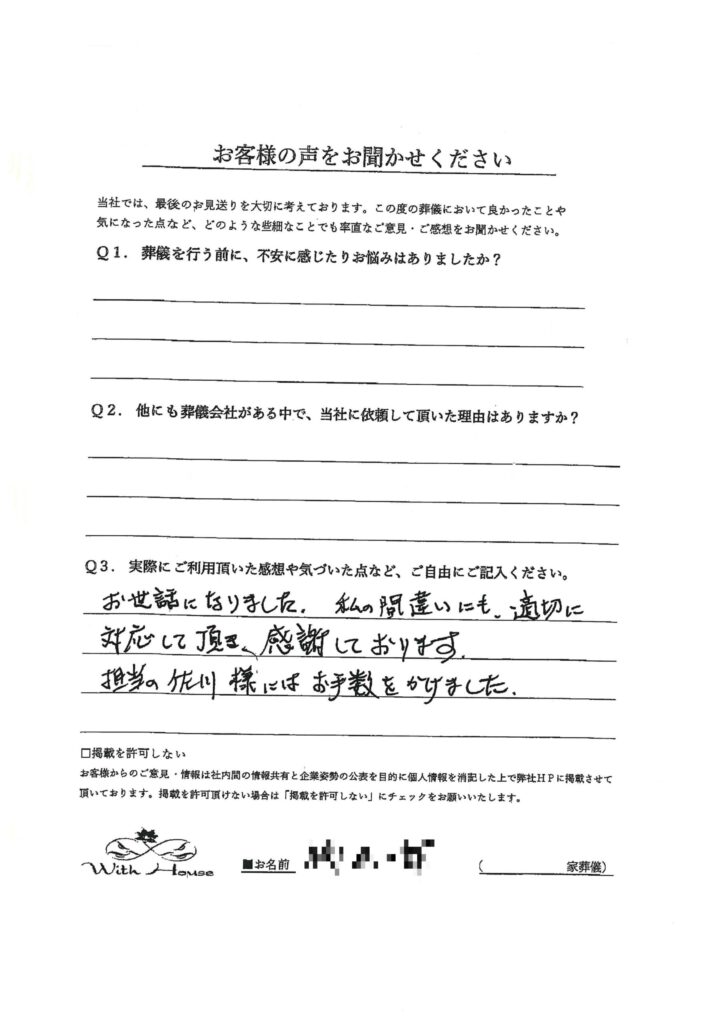 お客様の声をお聞かせください
当社では、最後のお見送りを大切に考えております。この度の葬儀において良かったことや
気になった点など、どのような些細なことでも率直なご意見・ご感想をお聞かせください。
Q1. 葬儀を行う前に、不安に感じたりお悩みはありましたか？
Q2. 他にも葬儀会社がある中で、当社に依頼して頂いた理由はありますか？
Q3. 実際にご利用頂いた感想や気づいた点など、ご自由にご記入ください。
お世話になりました。私の間違いにも、適切に
対応して頂き、感謝しております。
担当の佐川様にはお手数をかけました。
□掲載を許可しない
お客様からのご意見・情報は社内間の情報共有と企業姿勢の公表を目的に個人情報を消記した上で弊社HPに掲載させて
頂いております。掲載を許可頂けない場合は「掲載を許可しない」にチェックをお願いいたします。
With House
■お名前
( 家葬儀)